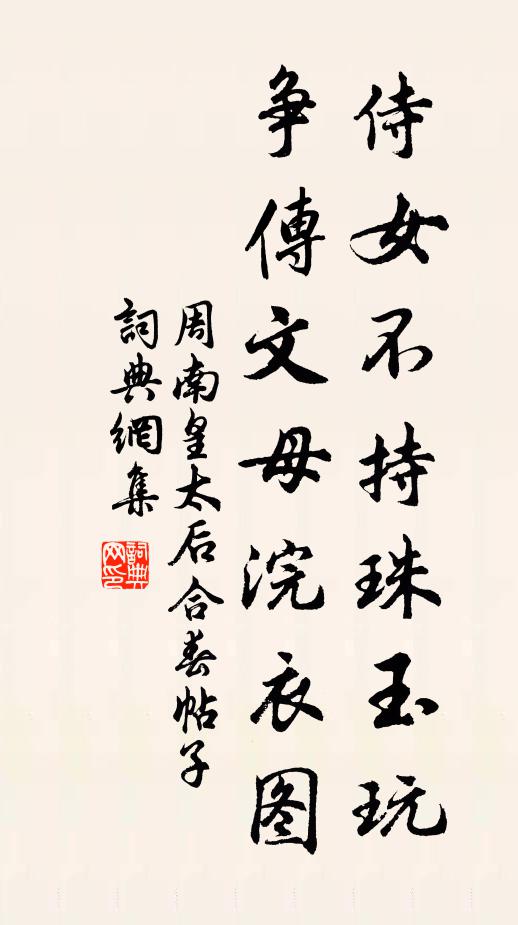 侍女不持珠玉玩
争傳文母浣衣图
周南皇太后合春帖子
詞典網集
詞典网印